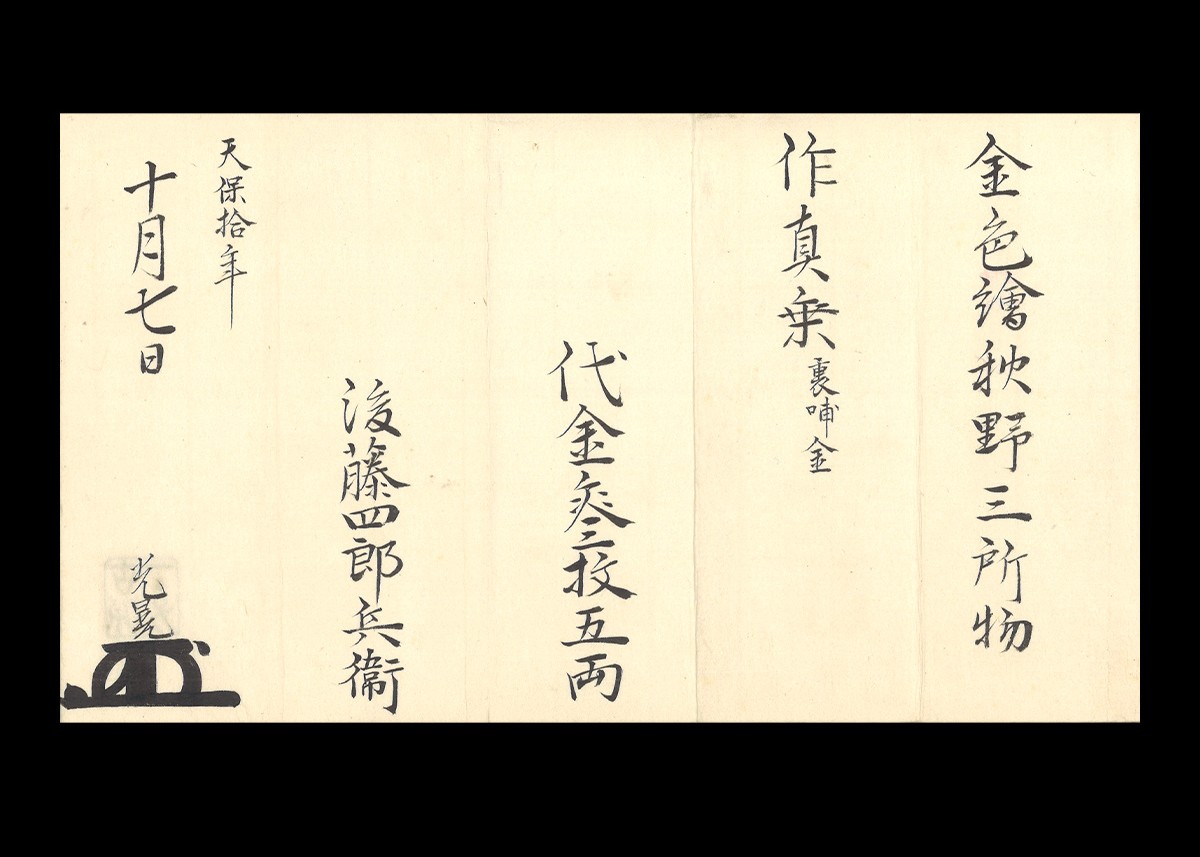 金色繪秋野三所物
作真乗裏哺金
代金叁枚五両
後藤四郎兵衛
天保拾年
十月七日
光晃